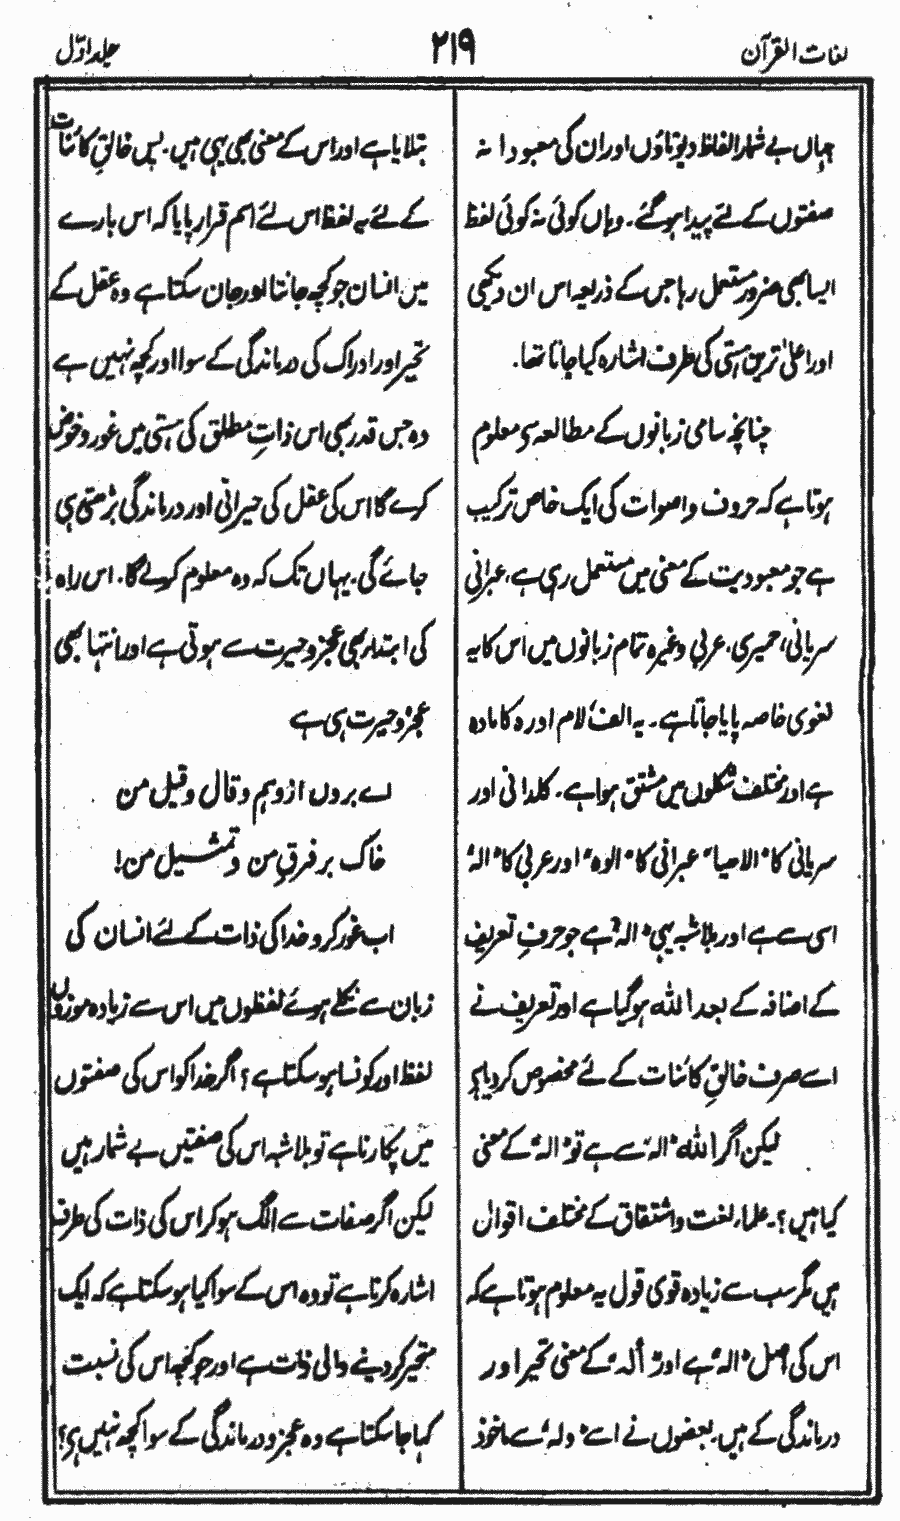 لغات القرآن
۲۱۹
جلد اوّل
جہاں بے شمار الفاظ دیوتاؤں اور ان کی معبودانہ
صفتوں کے لئے پیدا ہوگئے۔ وہاں کوئی نہ کوئی لفظ
ایسا بھی ضرور مستعمل رہا جس کے ذریعہ اس ان دیکھی
اور اعلیٰ ترین ہستی کی طرف اشارہ کیا جاتا تھا۔
چنانچہ سامی زبانوں کے مطالعہ سے معلوم
ہوتا ہے کہ حروف و اصوات کی ایک خاص ترکیب
ہے جو معبودیت کے معنی میں مستعمل رہی ہے، عبرانی
سریانی، حمیری، عربی وغیرہ تمام زبانوں میں اس کا یہ
لغوی خاصہ پایا جاتا ہے۔ یہ الف لام اور ہ کا مادہ
ہے اور مختلف شکلوں میں مشتق ہوا ہے۔ کلدانی اور
سریانی کا "الاھیا" عبرانی کا "الوہ" اور عربی کا "الہ"
اسی سے ہے اور بلاشبہ یہی "الہ" ہے جو حرفِ تعریف
کے اضافہ کے بعد اللہ ہوگیا ہے اور تعریف نے
اسے صرف خالقِ کائنات کے لئے مخصوص کر دیا ہے
لیکن اگر اللہ "الہ" سے ہے تو "الہ" کے معنی
کیا ہیں؟۔ علماء لغت و اشتقاق کے مختلف اقوال
ہیں مگر سب سے زیادہ قوی قول یہ معلوم ہوتا ہے کہ
اس کی اصل "الہ" ہے اور "اَلہ" کے معنی تحیر اور
درماندگی کے ہیں۔ بعضوں نے اسے "ولہ" سے ماخوذ
بتلایا ہے اور اس کے معنی بھی یہی ہیں۔ پس خالقِ کائنات
کے لئے یہ لفظ اس لئے اسم قرار پایا کہ اس بارے
میں انسان جو کچھ جانتا اور جان سکتا ہے وہ عقل کے
تحیر اور ادراک کی درماندگی کے سوا اور کچھ نہیں ہے
وہ جس قدر بھی اس ذاتِ مطلق کی ہستی میں غور و خوض
کرے گا اس کی عقل کی حیرانی اور درماندگی بڑھتی ہی
جائے گی۔ یہاں تک کہ وہ معلوم کر لے گا۔ اس راہ
کی ابتداء بھی عجز و حیرت سے ہوتی ہے اور انتہا بھی
عجز و حیرت ہی ہے
اے بروں از وہم و قال و قیل من
خاک بر فرقِ من و تمثیل من!
اب غور کرو خدا کی ذات کے لئے انسان کی
زبان سے نکلے ہوئے لفظوں میں اس سے زیادہ موزوں
لفظ اور کونسا ہو سکتا ہے؟ اگر خدا کو اس کی صفتوں
میں پکارنا ہے تو بلاشبہ اس کی صفتیں بے شمار ہیں
لیکن اگر صفات سے الگ ہو کر اس کی ذات کی طرف
اشارہ کرنا ہے تو وہ اس کے سوا کیا ہو سکتا ہے کہ ایک
متحیر کر دینے والی ذات ہے اور جو کچھ اس کی نسبت
کہا جا سکتا ہے وہ عجز و درماندگی کے سوا کچھ نہیں ہے؟